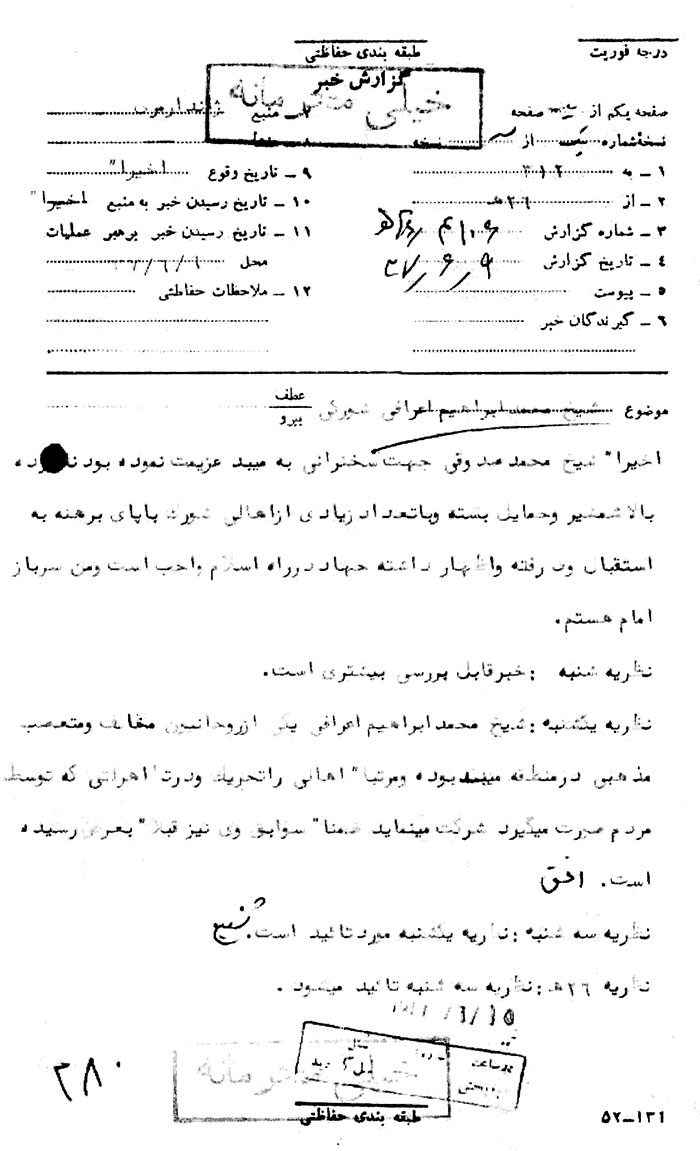 درجه فوریت
طبقه بندی حفاظتی
گزارش خبر
خیلی محرمانه
صفحه یکم از صفحه
نسخهٔ شماره یک از نسخه
۱ ـ به ۳۱۲
۲ ـ از ۲۶ﻫ
۳ ـ شماره گزارش
۴ ـ تاریخ گزارش ۳۷/۶/۹
۵ ـ پیوست
۶ ـ گیرندگان خبر
۷ ـ منبع ژاندارمری
۹ ـ تاریخ وقوع اخیرا"
۱۰ ـ تاریخ رسیدن خبر به منبع اخیرا"
۱۱ ـ تاریخ رسیدن خبر برهبر عملیات
محل ۳۷/۶/۹
۱۲ ـ ملاحظات حفاظتی
موضوع شیخ محمدابراهیم اعرافی شورکی
عطف
پیرو
اخیرا" شیخ محمدصدوقی جهت سخنرانی به میبد عزیمت نموده بود نامبرده
بالا شمشیر وحمایل بسته وباتعداد زیادی ازاهالی شورك باپای برهنه به
استقبال وی رفته واظهار داشته جهاد درراه اسلام واجب است ومن سرباز
امام هستم.
نظریه شنبه : خبرقابل بررسی بیشتری است.
نظریه یکشنبه : شیخ محمدابراهیم اعرافی یکی ازروحانیون مخالف ومتعصب
مذهبی درمنطقه میبد بوده ومرتبا" اهالی راتحریك ودرتظاهراتی که توسط
مردم صورت میگیرد شرکت مینماید ضمنا" سوابق وی نیز قبلا" بعرض رسیده
است. افق
نظریه سه شنبه : نظریه یکشنبه مورد تائید است. شفیع
نظریه ۲۶ﻫ : نظریه سه شنبه تائید میشود .
خیلی محرمانه
طبقه بندی حفاظتی
۲۸۰
۵۲-۱۳۱